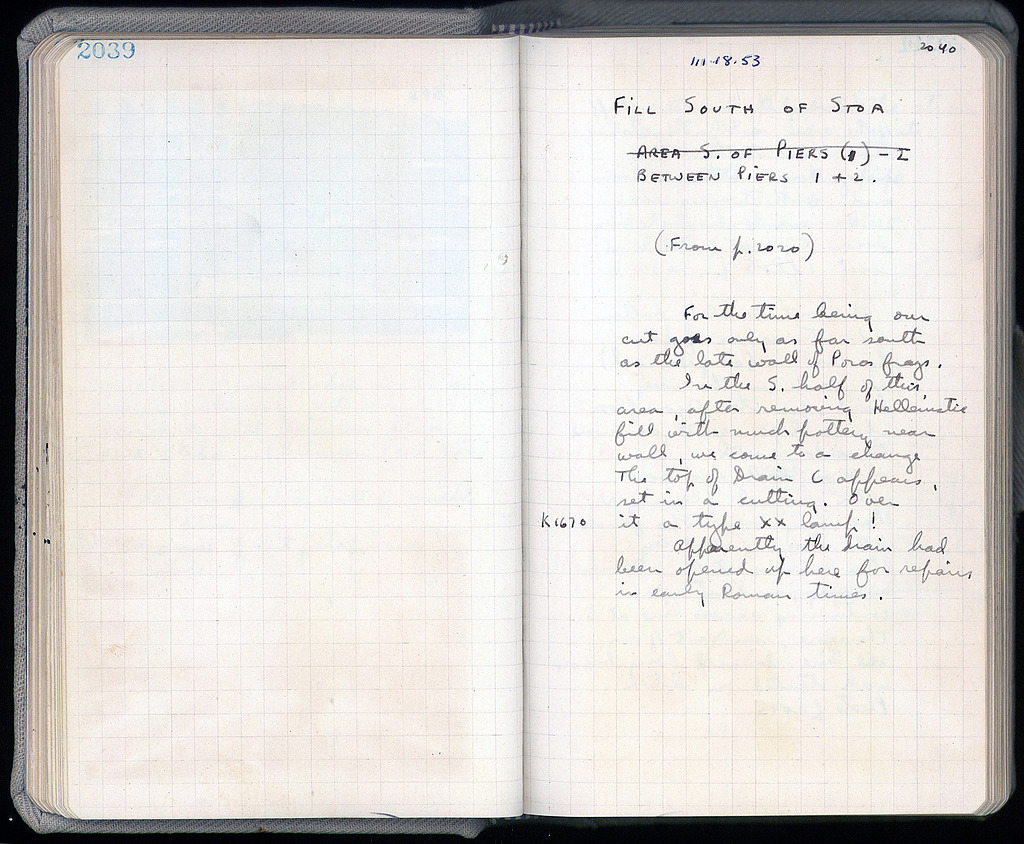 2039
2040
III-18-53
FILL SOUTH OF STOA
AREA S. OF PIERS (1) - 2
BETWEEN PIERS 1 + 2.
(From p. 2020)
For the time being our
cut goes only as far south
as the late wall of Poros frags.
In the S. half of this
area, after removing Hellenistic
fill with much pottery near
wall, we come to a change
The top of Drain C appears,
set in a cutting. Over
K1670 it a type XX lamp!
Apparently the drain had
been opened up here for repairs
in early Roman times.